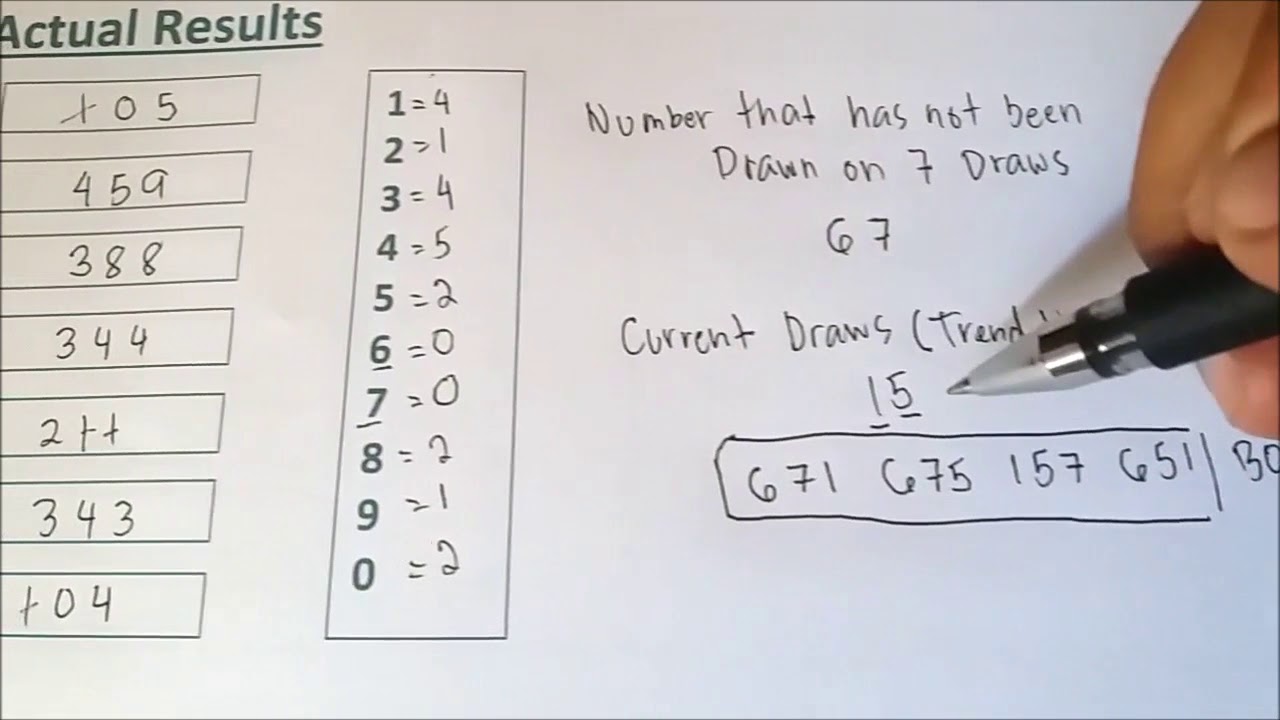 Actual Results
105
459
388
344
211
343
104
1=4
2=1
3=4
4=5
5=2
6=0
7=0
8=2
9=1
0=2
Number that has not been
Drawn on 7 Draws
67
Current Draws (Trend
15
671 675 157 651